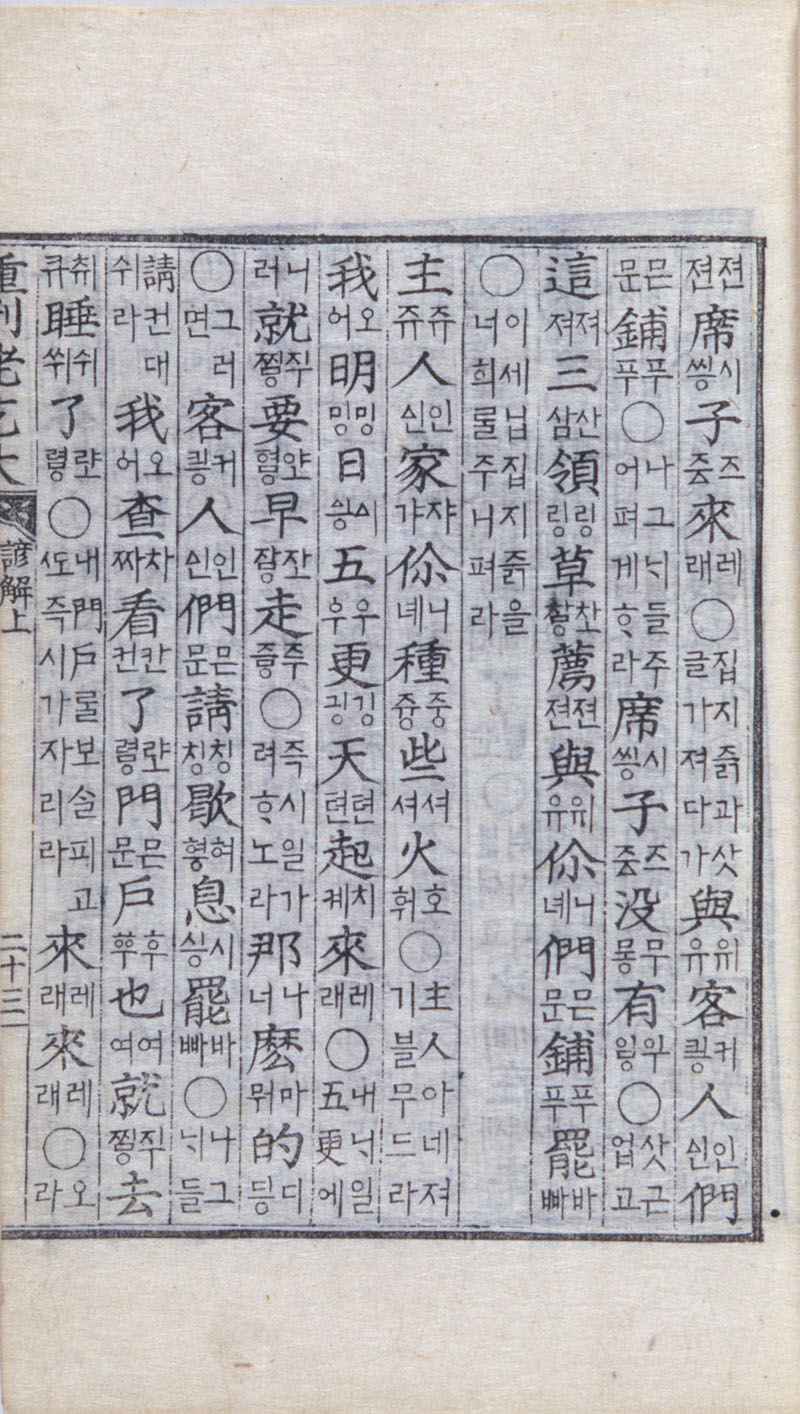 젼젼席씽시子즁즈來래레○집지즑과삿글가져다가與유위客킝커人신인們
문믄鋪푸푸○나그ᄂᆡ들주어펴게ᄒᆞ라席씽시子즁즈没몽무有이ᇢ우○삿근업고
這져져三삼산領링링草차ᇢᄎᅶ薦젼젼與유위伱녜니們문믄鋪푸푸罷빠바
○이세닙집지즑을너희롤주니펴라
主쥬쥬人신인家갸쟈伱녜니種즁중些셔셔火휘호○主人아네져기블무드라
我어오明밍밍日씽시五우우更깅깅天텬텬起켸치來래레○내ᄂᆡ일五更에
니러就要早走○즉시일가려ᄒᆞ노라那너나麽뭐마的딍디
○그러면客킝커人신인們문믄請칭칭歇ᅘᅧᆼ허息싱시罷빠바○나그ᄂᆡ들
請컨대쉬라我어오查짜차看컨칸了려ᇢᄅᅸ門문믄戶也여여就去
큐취睡쒸쉬了려ᇢᄅᅸ○내門戶롤보솔피고ᄯᅩ즉시가자리라來래레來래레○오라
重刊老乞大 諺解上 二十三